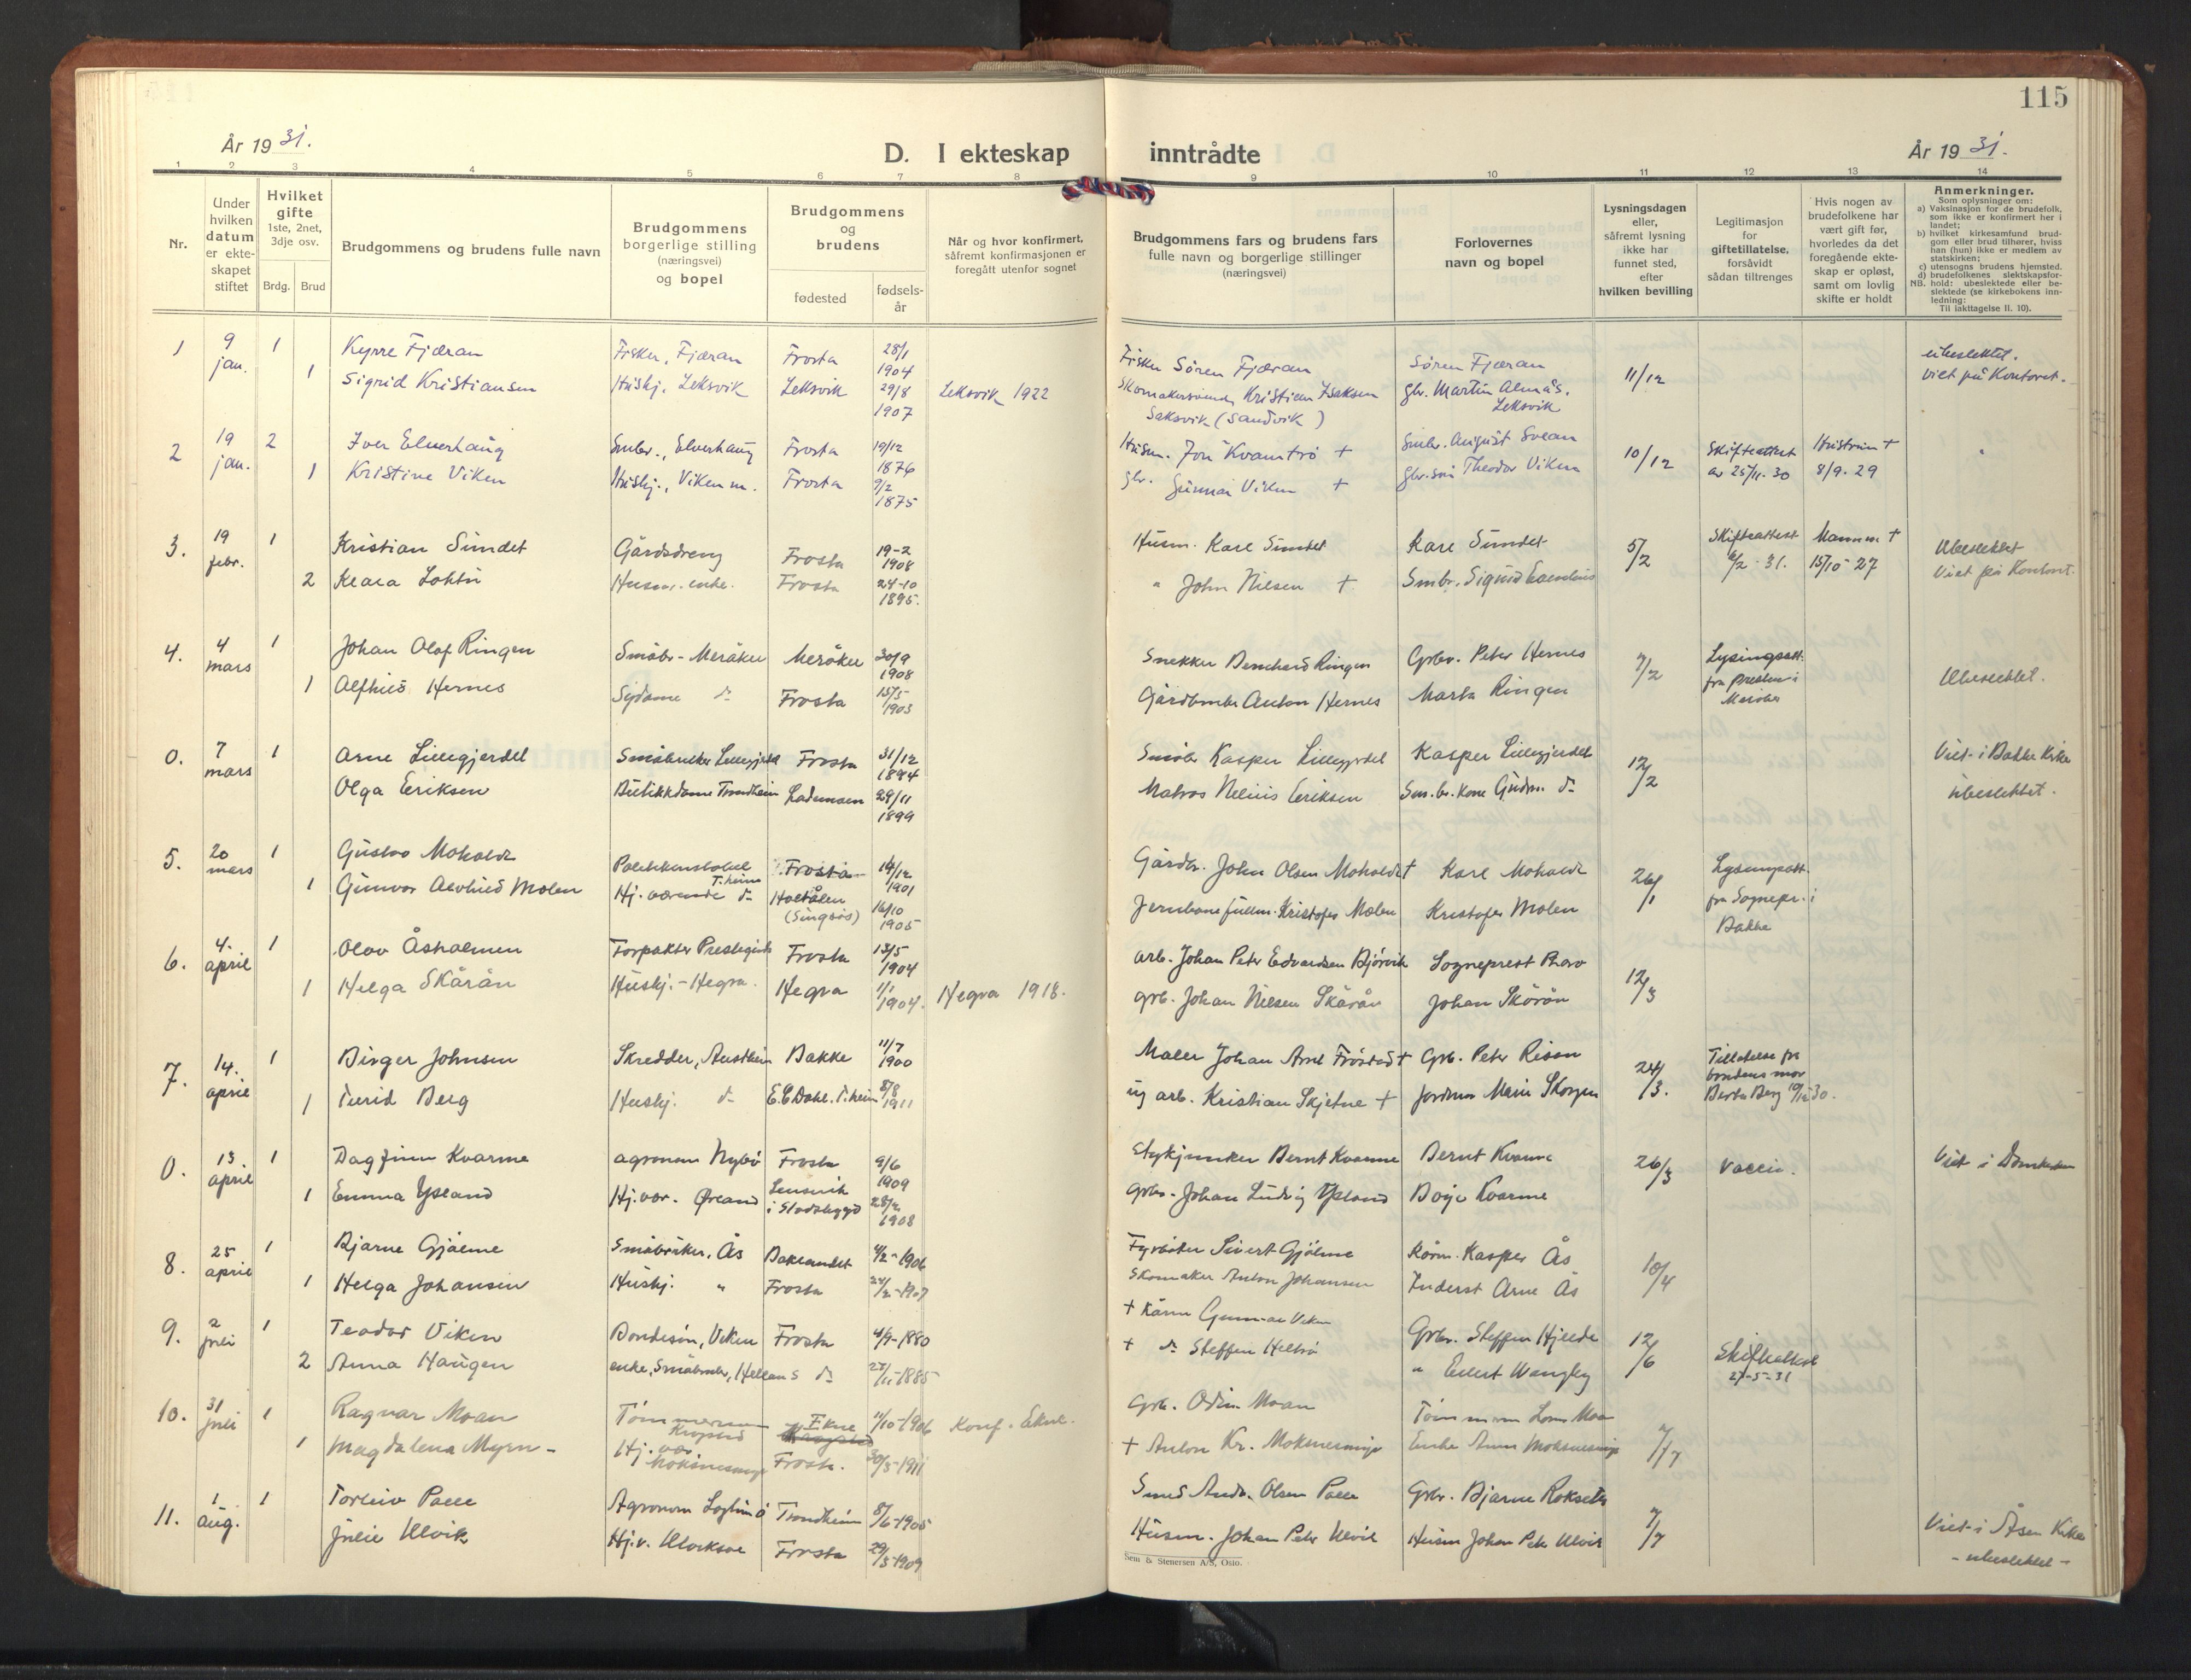 115
År 1931.
D. I ekteskap inntrådte
År 1931.
1 2 3 4 5 6 7 8 9 10 11 12 13 14
Nr.
Under hvilken datum er ekteskapet stiftet
Hvilket gifte 1ste, 2net, 3dje osv.
Brdg. Brud
Brudgommens og brudens fulle navn
Brudgommens borgerlige stilling (næringsvei) og bopel
Brudgommens og brudens
fødested
fødselsår
Når og hvor konfirmert, såfremt konfirmasjonen er foregått utenfor sognet
Brudgommens fars og brudens fars fulle navn og borgerlige stillinger (næringsvei)
Forlovernes navn og bopel
Lysningsdagen eller, såfremt lysning ikke har funnet sted, efter hvilken bevilling
Legitimasjon for giftetillatelse, forsåvidt sådan tiltrenges
Hvis nogen av brudefolkene har vært gift før, hvorledes da det foregående ekteskap er opløst, samt om lovlig skifte er holdt
Anmerkninger.
Som oplysninger om:
a) Vaksinasjon for de brudefolk, som ikke er konfirmert her i landet;
b) hvilket kirkesamfund brudgom eller brud tilhører, hviss han (hun) ikke er medlem av statskirken;
c) utensogns brudens hjemsted.
d) brudefolkenes slektskapsforhold: ubeslektede eller beslektede (se kirkebokens innledning:
NB.
Til iakttagelse II. 10).
1 9 jan. 1 Kyrre Fjæran Fisker, Fjæran Frosta 28/1 1904 Fisker Sören Fjæran Sören Fjæran 11/12 ubeslektet.
1 Sigrid Kristiansen Hushj. Leksvik Leksvik 29/8 1907 Leksvik 1922 Kristian Isaksen gbr. Martin Almås, Leksvik viet på Kontoret.
Saksvik (Sandvik)
2 19 jan. 2 Iver Elverhaug Smbr., Elverhaug Frosta 19/12 1876 Husm. Jon Kvamtrö + Smbr. August Svean 10/12 Skifteattest av 25/11-30 Hustruen + 8/9-29 "
1 Kristine Viken Hushj., Viken m. Frosta 9/2 1875 gbr. Gunnar Viken + gbr.sön Theodor Viken
3. 19 febr. 1 Kristian Sundet Gårdsdreng Frosta 19-2 1908 Husm. Karl Sundet Karl Sundet 5/2 Skifteattest 6/2-31. Mannen + 15/10-27 Ubeslektet
2 Klara Lohtu Husm. enke. Frosta 24-10 1895. " John Nilsen + Smbr. Sigurd Viet på Kontoret.
4. 4 mars 1 Johan Olaf Ringen Småbr-Meråker Meråker 30/9 1908 Snekker Bernhard Ringen Grbr. Peter Hernes 7/2 Lysingsatt. fra presten i Meråker Ubeslektet.
1 Alfhild Hernes Sydame do Frosta 15/5 1903 Gårdbruker Anton Hernes Marta Ringen
0. 7 mars 1 Arne Lillegjerdet Småbruker Lillegjerdet Frosta 31/12 1894 Småbr Kasper Lillegjerdet Kasper Lillegjerdet 12/2 Viet i Bakke Kirke
Olga Eriksen Butikkdame Trondheim Lademoen 29/11 1899 Matros Nelius Eriksen Sm.br. Kone Gudm. do ubeslektet.
5. 20 mars 1 Gustav Moholdt Politikonstabel T.heim Frosta 14/12 1901 Gårdbr. John Olsen Moholdt + Karl Moholdt 26/1 Lysningsatt. fra Sognepr. i Bakke
1 Gunvor Alvhild Molen Hj. værende do Holtålen (Singsås) 16/10 1905 Jernbanefullm. Kristofer Molen Kristofer Molen
6. 4. april 1 Olav Åsholmen Forpakter Prestegården Frosta 13/5 1904 arb. Johan Peter Edvardsen Bjørvik Sogneprest 12/3
1 Helga Skårån Hushj.-Hegra. Hegra 1/1 1904. Hegra 1918. grb. Johan Nilsen Skårån Johan Skårån
7. 14. april 1 Birger Johnsen Skredder, Austheim Bakke 11/7 1900 Maler Johan Arnt Fröstad + Grb. Peter Risan 24/3. Tillatelse fra brudens mor Berta Berg 10/12 30.
1 Turid Berg Hushj. do E.C. Dahl. T.heim 8/8 1911 ug arb. Kristian Skjetne + Jordmor Marie Skorpen
0. 13 april 1 Dagfinn Kvarme agronom Nybö Frosta 9/6 1909 Stykjunker Bernt Kvarme Bernt Kvarme 26/3 Vaccin. Viet i Domkirken
1 Emma Ysland Hj.vær. Ørland Lensvik i Stadsbygd 28/2 1908 Grbr. Johan Ludvig Ysland Borje Kvarme
8. 25 april 1 Bjarne Gjölme Småbruker, Ås Baklandet 4/2-1906 Fyrböter Sivert Gjölme Kårm. Kasper Ås 10/4
1 Helga Johansen Hushj. " Frosta 24/2-1907 Skomaker Anton Johansen Inderst Arne Ås
9. 2 juli 1 Teodor Viken Bondesön, Viken Frosta 4/9-1880 + Kårm Gunnar Viken Grbr. Steffen Hjelde 12/6 Skifteattest 27-5-31
2 Anna Haugen enke, Småbruk, Hellan S do 27/11-1885 + do Steffen Heltrö " Eilert Wangby
10. 31 juli 1 Ragnar Moan Tömmermann Ekne 11/10-1906 Konf. Ekne. Grb. Odin Moan Tömmerm Moan 7/7
1 Magdalena Myrn- Hj. vær. Frosta. 30/5-1911 + Anton Kr. Moksnesmyr Enke Anna Moksnesmyr
11. 1 aug. 1 Torleiv Palle Agronom Trondheim 8/6-1905 Smed Andr. Olsen Grbr. Bjarne Rokseth 7/7 Viet i Åsen Kirke
Julie Ulvik Hj.v. Frosta 29/3-1909 Husm. Johan Peter Ulvik Husm Johan Peter Ulvik - ubeslektet -
Sem & Stenersen A/S, Oslo.